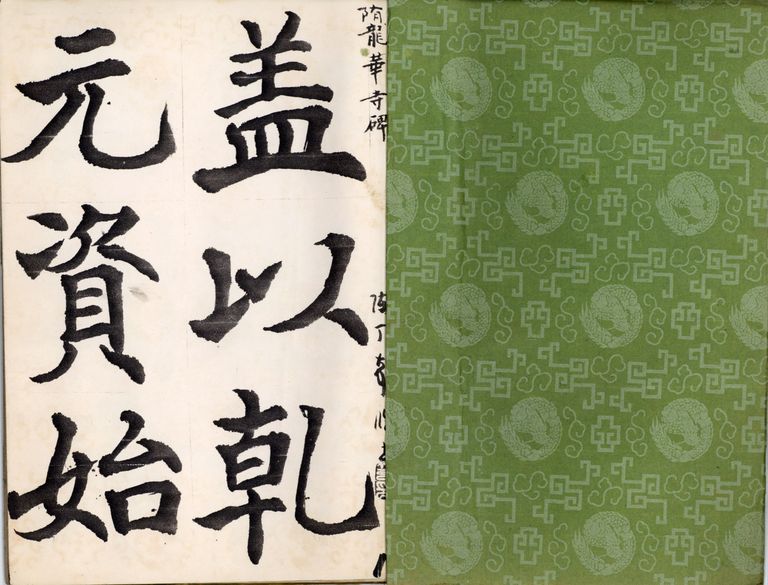 隋龍華寺碑
盖以乹
元資始